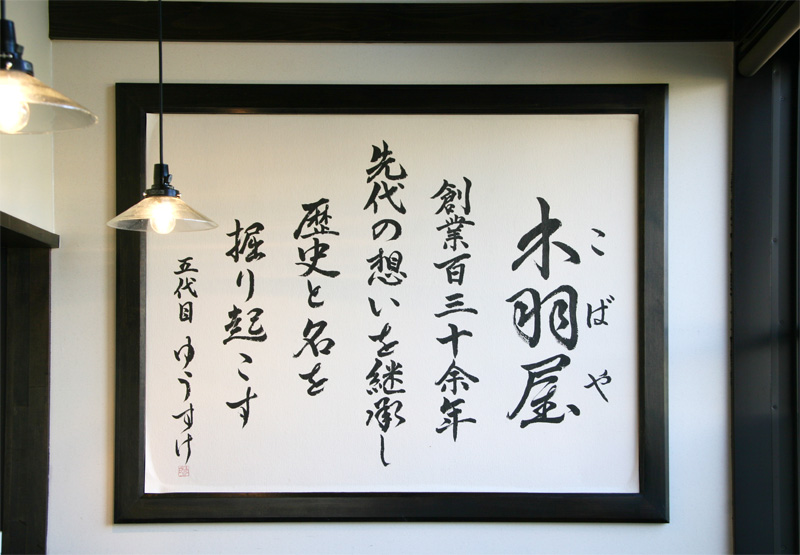 木羽屋
こばや
創業百三十余年
先代の想いを継承し
歴史と名を
掘り起こす
五代目 ゆうすけ